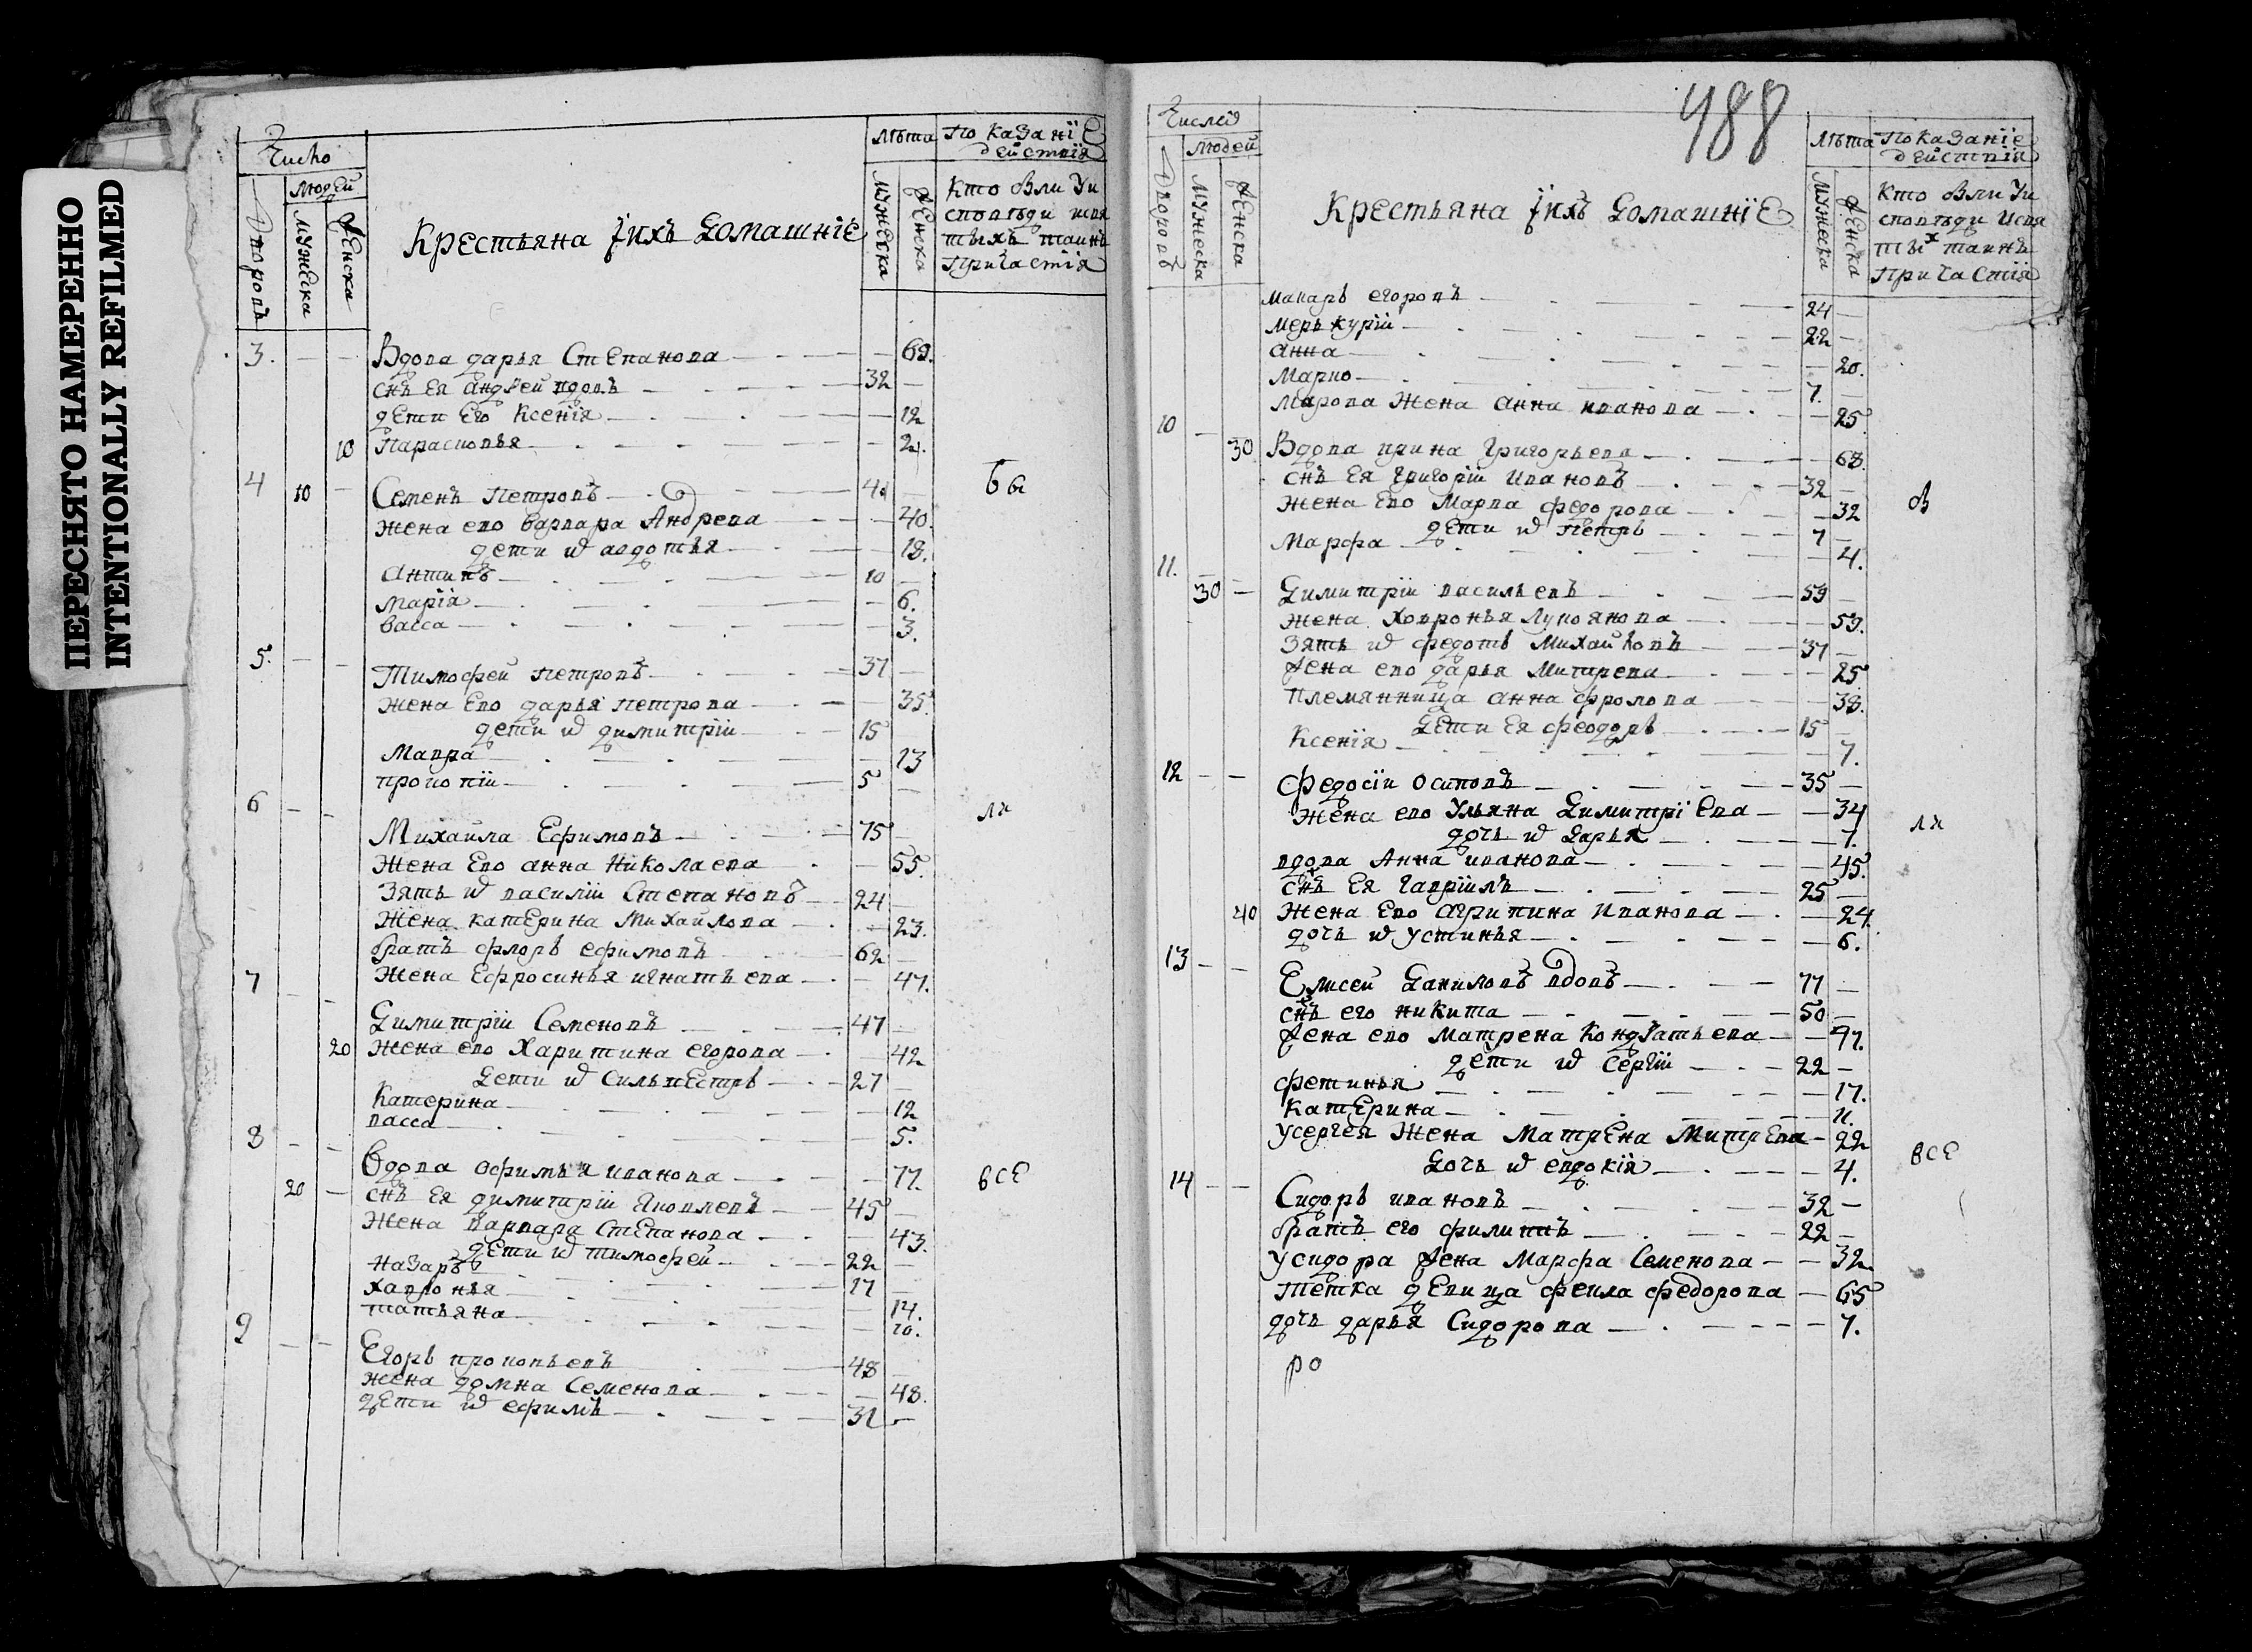 ПЕРЕСНЯТО НАМЕРЕННО
INTENTIONALLY REFILMED
Число
Людей
Дворовъ
Мужеска
Женска
Крестьяна iихъ домашнiе
Лѣта
Мужеска
Женска
Показанiе
действiя
Кто былъ у и
споведи исвя
тыхъ таинъ
Причастiя
3. Вдова дарья Степанова 69.
снъ ея андрей вдовъ 32
дети его Ксенiя 12
10 Парасковья 2.
4 10 Семенъ Петровъ 41 бы
Жена ево варвара Андрева 40.
дети ѿ авдотья 18.
Антипъ 10
Марiя 6.
васса 3.
5. Тимофей петровъ 37
жена ево дарья петрова 35.
дети ѿ димитрiи 15
Мавра 13
прокопiи 5
6 ли
Михайла Ефимовъ 75
Жена ево анна Николаева 55.
Зять ѿ василiи Степановъ 24
Жена катерина Михайлова 23.
братъ флоръ ефимовъ 62
7 Жена Ефросинья игнатьева 47.
Димитрiи Семеновъ 47
20 Жена ево Харитина егорова 42
Дети ѿ Сильвестръ 27
Катерина 12
васса 5.
8
Вдова офимья иванова 77. все
20 снъ ея димитрiи Яковлевъ 45
Жена варвара Степанова 43.
дети ѿ тимофей 22
Назаръ 17
Хавронья 14.
татьяна 10.
9
Егоръ прокопьевъ 48
жена домна Семенова 48.
дети ѿ ефимъ 31
488
Числѡ
Людей
Дворовъ
Мужеска
Женска
Крестьяна iихъ домашнiе
Лѣта
Мужеска
Женска
Показанiе
действiя
Кто были у и
споведи исвя
тыхъ таинъ
Причастiя
макаръ егоровъ 24
меръкурiи 22
анна 20.
Марко 7.
Марова Жена анна иванова 25
10
30 Вдова ирина Григорьева 68.
снъ ея григорiи Ивановъ 32
жена ево Марва федорова 32
дети ѿ петръ 7
Марфа 4.
11.
30 Димитрiи васильевъ 59
жена Хавронья Лукоянова 53.
Зять ѿ федотъ Михайловъ 37
Жена ево дарья Митрева 25
племянница анна фролова 38.
Дети ея феодоръ 15
Ксенiя 7.
12 федосiи осиповъ 35
жена ево Ульяна Димитрiева 34 ли
дочь ѿ Дарья 7.
вдова Анна иванова 45.
снъ ея гаврiилъ 25
40 Жена ево агрипина Иванова 24
дочь ѿ устинья 6.
13
Елисей Даниловъ вдовъ 77
снъ его никита 50
Жена ево матрена Кондратьева 47.
дети ѿ Сергiи 22
фетинья 17.
Катерина 11.
усергея Жена Матрена Митрева 22
Дочь ѿ евдокiя 4. все
14
Сидоръ ивановъ 32
братъ его филиппъ 22
усидора Жена Марфа Семенова 32
тетка девица фекла федорова 65
дочь дарья Сидорова 7.
ро